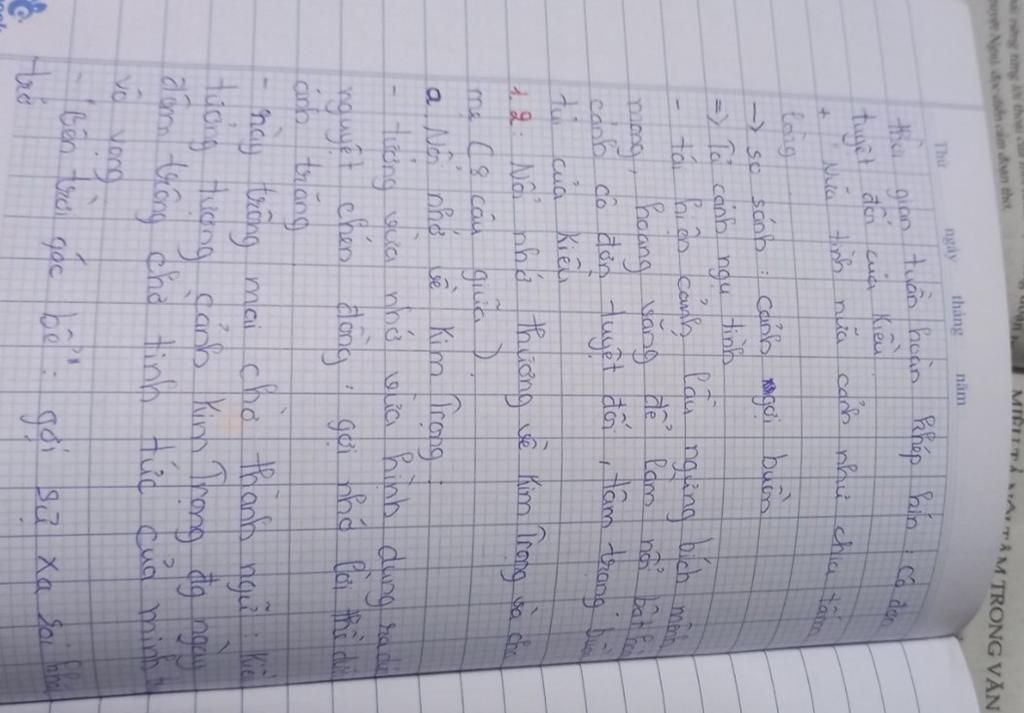 MIÊU TẢ NỘI TÂM TRONG VĂN
Thứ ngày tháng năm
thời gian tuần hoàn khép kín: cô đơn
tuyệt đối của Kiều
+ Nửa tình nửa cảnh như chia tấm
lòng
-> so sánh: cảnh gợi buồn
=> Tả cảnh ngụ tình
- tái hiện cảnh lầu ngưng bích mênh
mong, hoang vắng để làm nổi bật
cảnh cô đơn tuyệt đối, tâm trạng
tủi của Kiều
1.2: Nỗi nhớ thương về Kim Trọng và cha
mẹ (8 câu giữa)
a. Nỗi nhớ về Kim Trọng:
- tưởng vừa nhớ vừa hình dung ra
nguyệt chén đồng: gợi nhớ lời thề
ánh trăng
- rày trông mai chờ thành ngữ: Kiều
tưởng tượng cảnh Kim Trọng đg ngày
đêm trông chờ tinh tức của mình
vô vọng
- "Bên trời góc bể": gợi sự xa xôi
trở